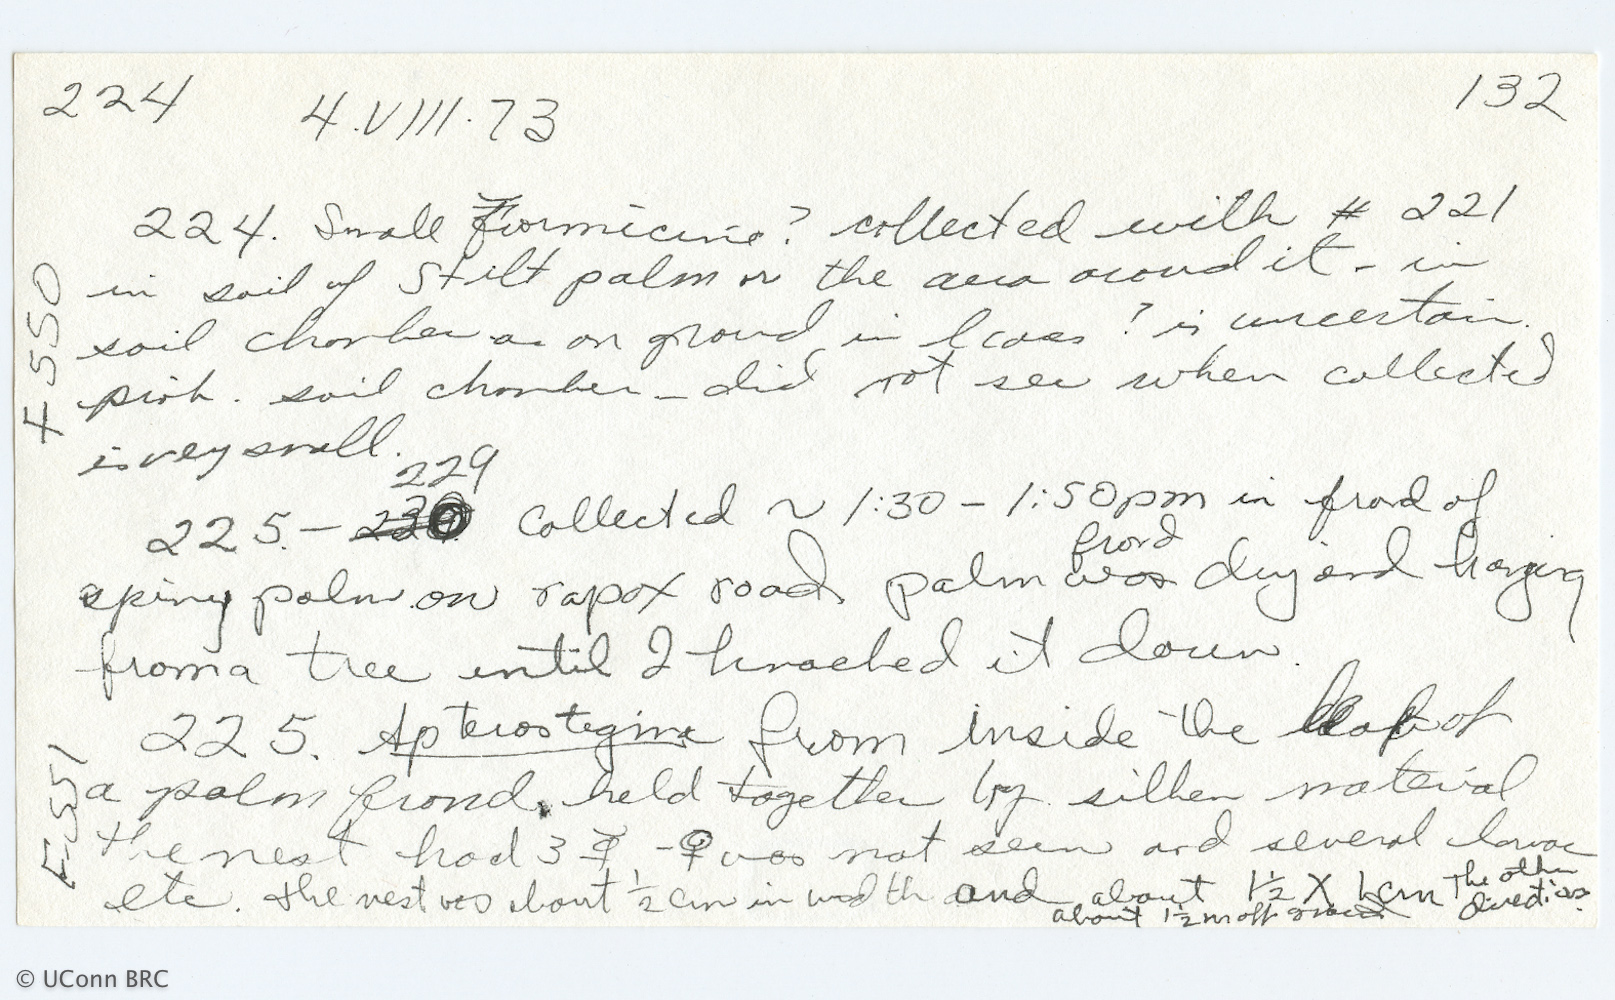 224
4.VIII.73
132
224. Small Formicine? collected with # 221
in soil of Stilt palm or the area around it - in
soil chamber or on ground in leaves? is uncertain.
prob. soil chamber - did not see when collected
is very small.
F550
229
225.- 230 Collected ~ 1:30 - 1:50pm in frond of
spiny palm on rapox road. palm was dry and hanging
frond
from a tree until I knocked it down.
225. Apterostigma from inside the leaf of
a palm frond, held together by silken material
the nest had 3 ☿, - ♀ was not seen and several larvae
etc. the nest was about ½ cm in width and about 1½ X 1cm the other directions.
about 1½ m off ground
F551
© UConn BRC